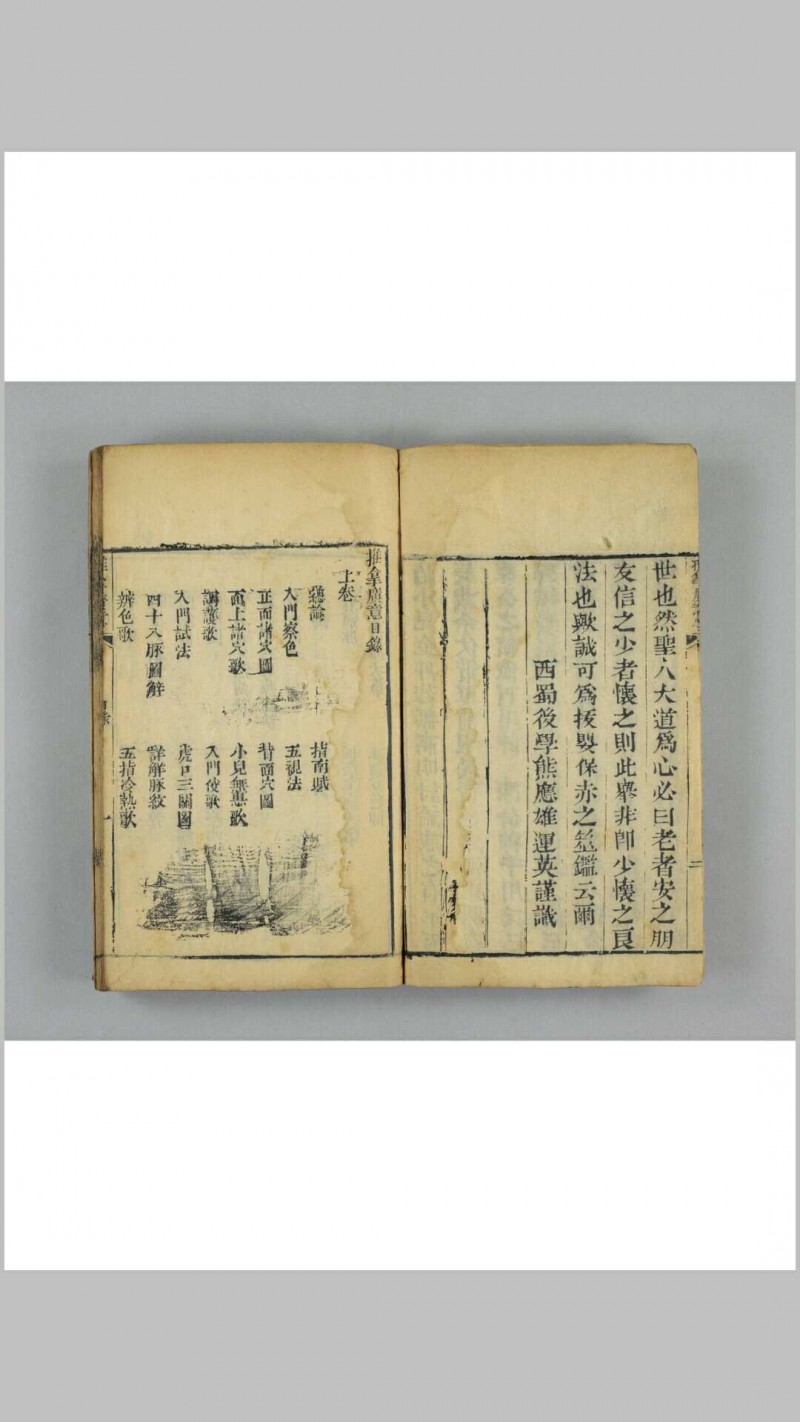 世也然聖人大道為心必曰老者安之朋
友信之少者懷之則此舉非卽少懷之良
法也歟誠可為抜嬰保赤之寳鑑云爾
西蜀後學熊應雄運英謹識
二
推拿廣意目錄
上卷
總論
指南賦
入門察色
五視法
正面諸穴圖
背面穴圖
面上諸穴歌
小兒無患歌
調護歌
入門候歌
入門試法
虎口三關圖
四十八脉圖解
詳解脉紋
辨色歌
五指冷熱歌
一